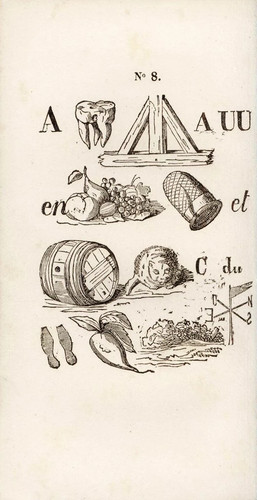 Nº 8.
A A UU
en et
C du
O N
E S